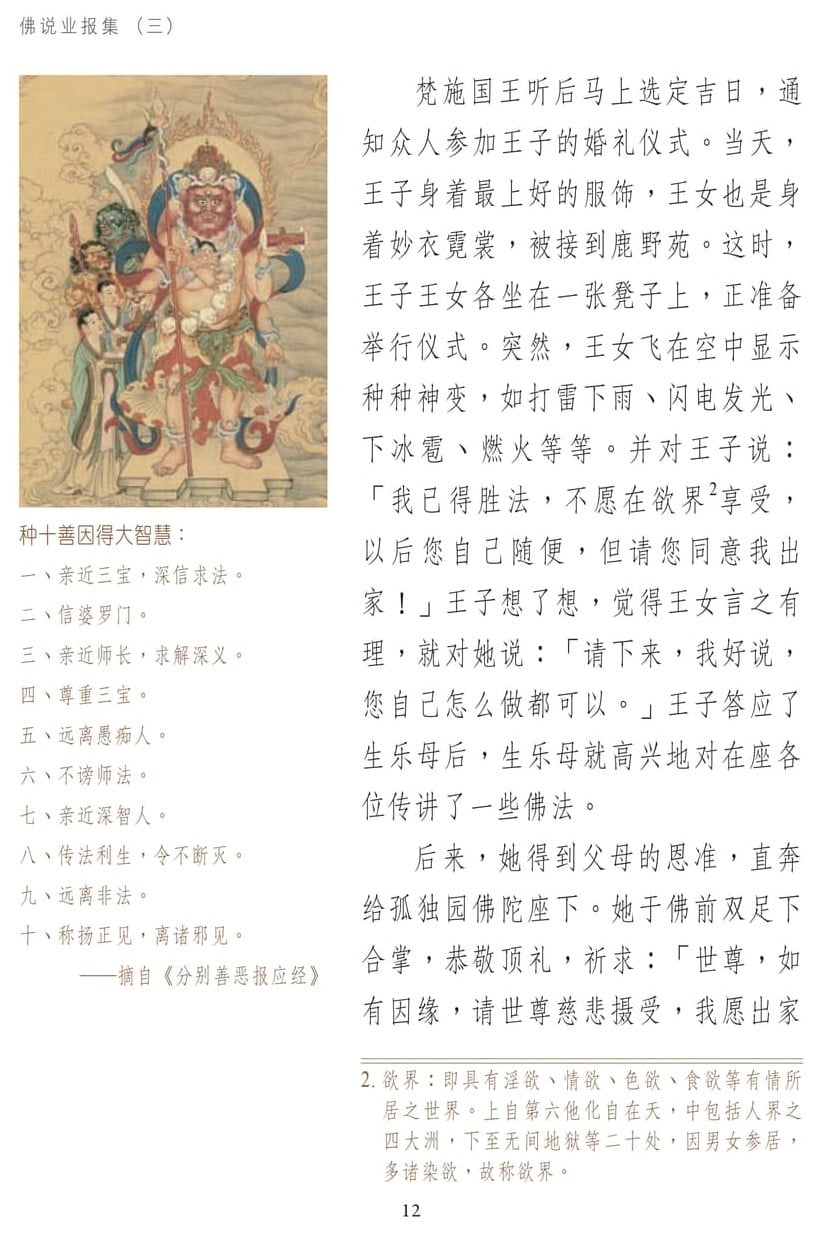 佛说业报集（三）
种十善因得大智慧：
一、亲近三宝，深信求法。
二、信婆罗门。
三、亲近师长，求解深义。
四、尊重三宝。
五、远离愚痴人。
六、不谤师法。
七、亲近深智人。
八、传法利生，令不断灭。
九、远离非法。
十、称扬正见，离诸邪见。
——摘自《分别善恶报应经》
梵施国王听后马上选定吉日，通
知众人参加王子的婚礼仪式。当天，
王子身着最上好的服饰，王女也是身
着妙衣霓裳，被接到鹿野苑。这时，
王子王女各坐在一张凳子上，正准备
举行仪式。突然，王女飞在空中显示
种种神变，如打雷下雨、闪电发光、
下冰雹、燃火等等。并对王子说：
「我已得胜法，不愿在欲界2享受，
以后您自己随便，但请您同意我出
家！」王子想了想，觉得王女言之有
理，就对她说：「请下来，我好说，
您自己怎么做都可以。」王子答应了
生乐母后，生乐母就高兴地对在座各
位传讲了一些佛法。
后来，她得到父母的恩准，直奔
给孤独园佛陀座下。她于佛前双足下
合掌，恭敬顶礼，祈求：「世尊，如
有因缘，请世尊慈悲摄受，我愿出家
2. 欲界：即具有淫欲、情欲、色欲、食欲等有情所
居之世界。上自第六他化自在天，中包括人界之
四大洲，下至无间地狱等二十处，因男女参居，
多诸染欲，故称欲界。
12